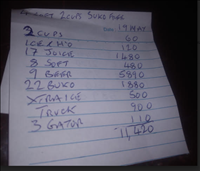 2 CUPS BUKO PURE
19 MAY
2 CUPS 60
ICE 120
17 JUICE 1680
8 SOFT 480
9 BEER 5890
22 BUKO 1880
XTRA ICE 500
TRUCK 900
3 GATOR 110
11,420